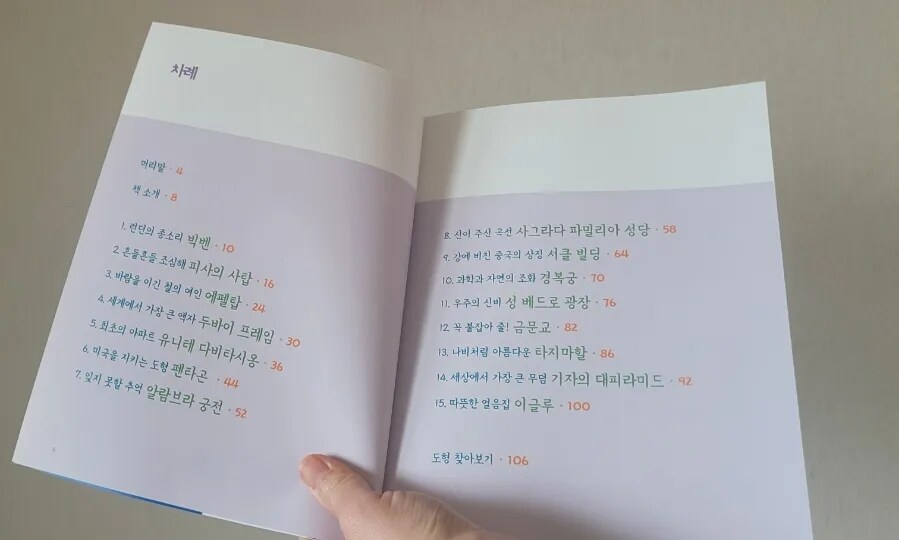 차례
머리말 · 4
책 소개 · 8
1. 런던의 종소리 빅벤 · 10
2. 흔들흔들 조심해 피사의 사탑 · 16
3. 바람을 이긴 철의 여인 에펠탑 · 24
4. 세계에서 가장 큰 액자 두바이 프레임 · 30
5. 최초의 아파트 유니테 다비타시옹 · 36
6. 미국을 지키는 도형 펜타곤 · 44
7. 잊지 못할 추억 알람브라 궁전 · 52
8. 신이 주신 곡선 사그라다 파밀리아 성당 · 58
9. 강에 비친 중국의 상징 서클 빌딩 · 64
10. 과학과 자연의 조화 경복궁 · 70
11. 우주의 신비 성 베드로 광장 · 76
12. 꼭 붙잡아 줄! 금문교 · 82
13. 나비처럼 아름다운 타지마할 · 86
14. 세상에서 가장 큰 무덤 기자의 대피라미드 · 92
15. 따뜻한 얼음집 이글루 · 100
도형 찾아보기 · 106